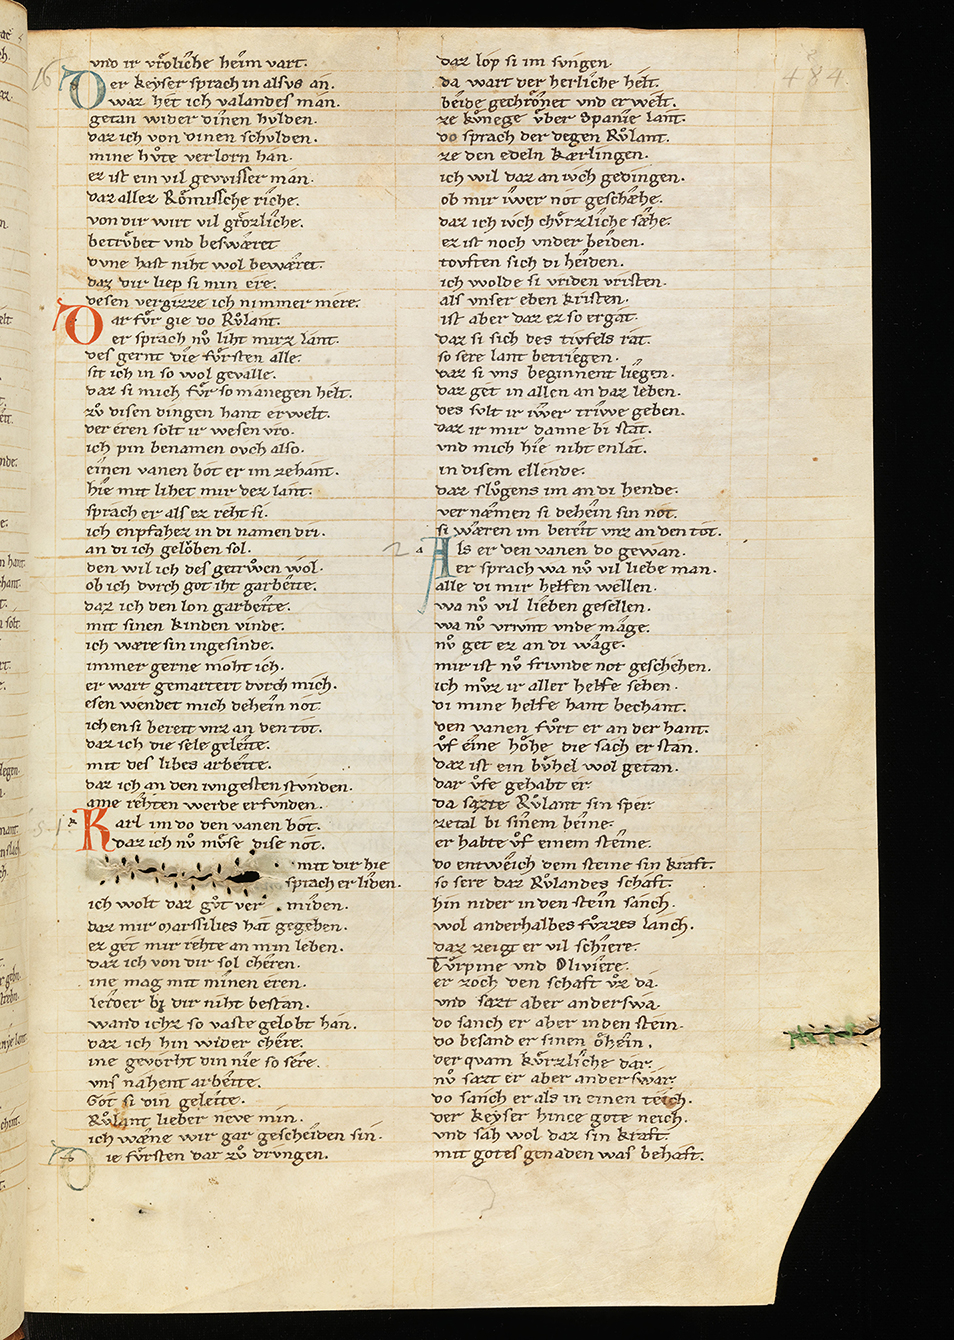 vnd ir vrͦoliche heim vart.
Der keyser sprach in alsvs an.
waz het ich valandes man.
getan wider dinen hvlden.
daz ich von dinen schvlden.
mine hvͦte verlorn han.
er ist ein vil gewisser man.
daz allez Rͦomissche riche.
von dir wirt vil grͦozliche.
betrvͦbet vnd beswæret
dvne hast niht wol bewæret.
daz dir liep si min ere.
desen vergizze ich nimmer mere.
Dar fvͦr gie do Rvͦlant.
er sprach nvͦ liht mirz lant.
des gernt die fvͦrsten alle.
sit ich in so wol gevalle.
daz si mich fvͦr so manegen helt.
zvͦ disen dingen hant erwelt.
der eren solt ir wesen vro.
ich pin benamen ovch also.
einen vanen bot er im zehant.
hie mit lihet mir dez lant.
sprach er als ez reht si.
ich enpfahez in di namen dri.
an di ich gelͦoben sol.
den wil ich des getrvͦwen wol.
ob ich dvrch got iht garbeite.
daz ich den lon garbeite.
mit sinen kinden vinde.
ich wære sin ingesinde.
immer gerne moht ich.
er wart gemartert dvrch mich.
esen wendet mich dehein not.
ich en si bereit vnz an den tot.
daz ich die sele geleite.
mit des libes arbeite.
daz ich an den ivngesten stvnden.
ane rehten werde erfvnden.
Karl im do den vanen bot.
daz ich nvͦ mvͦse dise not.
mit dir hie
sprach er liden.
ich wolt daz gvͦt ver miden.
daz mir Marssilies hat gegeben.
ez get mir rehte an min leben.
daz ich von dir sol cheren.
ine mag mit minen eren.
leider bi dir niht bestan.
wand ichz so vaste gelobt han.
daz ich hin wider chere.
ine gevorht din nie so sere.
vns nahent arbeite.
Got si din geleite.
Rvͦlant lieber neve min.
ich wæne wir gar gescheiden sin.
Die fvͦrsten dar zvͦ drvngen.
484
daz lop si im svngen.
da wart der herliche helt.
beide gechrͦonet vnd erwelt.
ze kvͦnege vͦber Spanie lant.
do sprach der degen Rvͦlant.
ze den edeln Kærlingen.
ich wil daz an iwch gedingen.
ob mir iwer not geschæhe.
daz ich iwch chvͦrzliche sæhe.
ez ist noch vnder beiden.
tovften sich di heiden.
ich wolde si vriden vristen.
als vnser eben kristen.
ist aber daz ez so ergat.
daz si sich des tivfels rat.
so sere lant betriegen.
daz si vns beginnent liegen.
daz get in allen an daz leben.
des svlt ir iwer triwe geben.
daz ir mir danne bi stat.
vnd mich hie niht enlat.
in disem ellende.
daz slvͦgens im an di hende.
ver næmen si dehein sin not.
si wæren im bereit vnz an den tot.
Als er den vanen do gewan.
er sprach wa nvͦ vil liebe man.
alle di mir helfen wellen.
wa nvͦ vil lieben gesellen.
wa nvͦ vrivnt vnde mage.
nvͦ get ez an di wage.
mir ist nvͦ frivnde not geschehen.
ich mvͦz ir aller helfe sehen.
di mine helfe hant bechant.
den vanen fvͦrt er an der hant.
vͦf eine hͦohe die sach er stan.
daz ist ein bvͦhel wol getan.
dar vͦfe gehabt er
da sazte Rvͦlant sin sper
zetal bi sinem beine.
er habte vͦf einem steine.
do entweich dem steine sin kraft.
so sere daz Rvͦlandes schaft.
hin nider in den stein sanch.
wol anderhalbes fvͦzzes lanch.
daz zeigt er vil schiere.
Tvͦrpine vnd Oliviere.
er zoch den schaft vͦz da.
vnd sazt aber anderswa.
do sanch er aber in den stein.
do besand er sinen ͦohein.
der quam kvͦrzliche dar.
nvͦ sazt er aber anderswar
do sanch er als in einen teich.
der keyser hince gote neich.
vnd sah wol daz sin kraft.
mit gotes genaden was behaft.